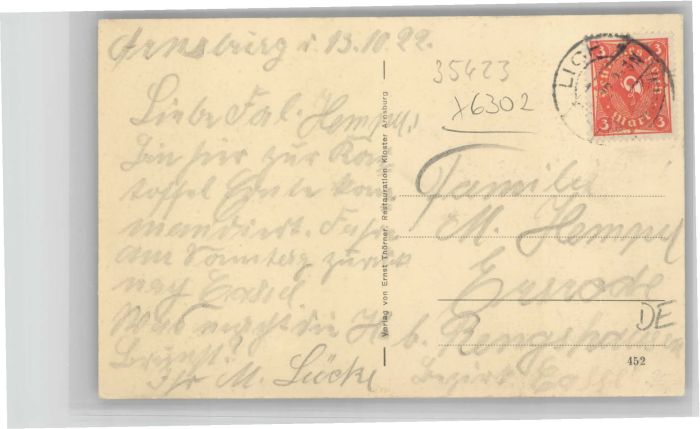 Arnsburg i. 13.10.22.
Liebe Fal. Hempel!
Bin hier zur Kar-
toffel Ernte kom
mandiert. Fahre
am Sonntag zurück
nach Cassel
Was macht die H
Ihr M. Lücke
Verlag von Ernst Thörner, Restauration Kloster Arnsburg
35423
X6302
LICH
3 3
Deutsches Reich
3 Mark 3
Familie
M. Hempel
b. Rengshausen
Bezirk Cassel
DE
452